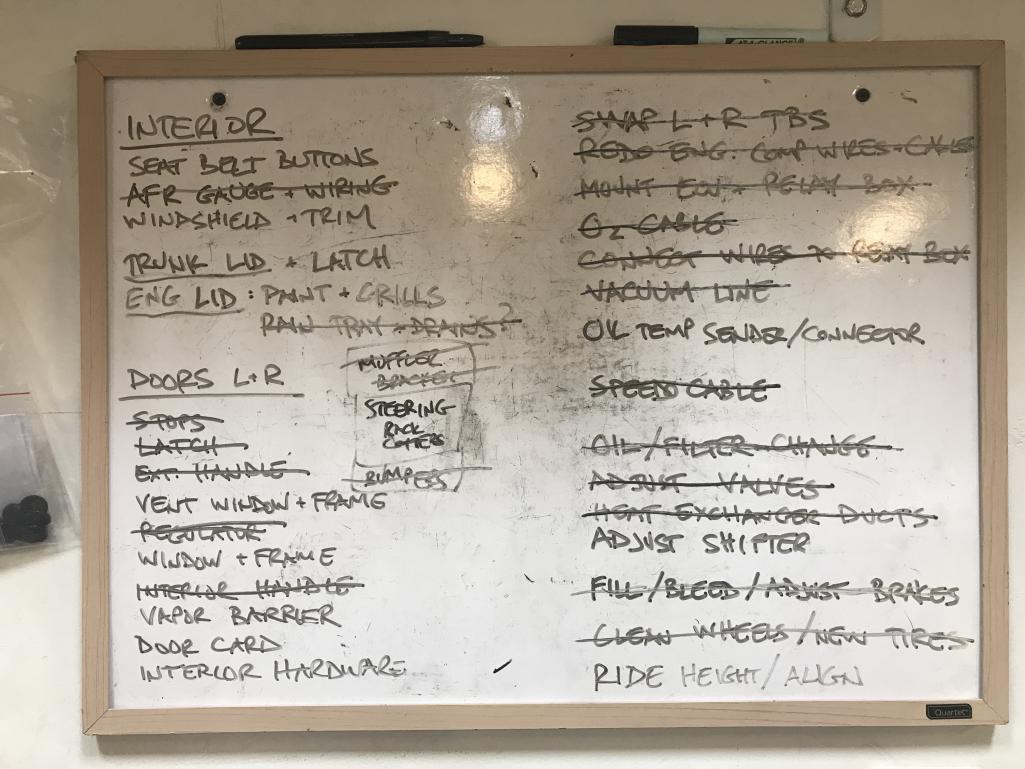 INTERIOR
SEAT BELT BUTTONS
AFR GAUGE + WIRING
WINDSHIELD + TRIM
TRUNK LID + LATCH
ENG LID : PAINT + GRILLS
RAIN TRAY + DRAINS?
DOORS L+R
STOPS
LATCH
EXT. HANDLE
VENT WINDOW + FRAME
REGULATOR
WINDOW + FRAME
INTERIOR HANDLE
VAPOR BARRIER
DOOR CARD
INTERIOR HARDWARE
MUFFLER
BRACKET
STEERING
RACK
COTTERS
BUMPERS
SWAP L + R TBS
REDO ENG. COMP WIRES + CABLES
MOUNT ECU + RELAY BOX
O2 CABLE
CONNECT WIRES TO RELAY BOX
VACUUM LINE
OIL TEMP SENDER/CONNECTOR
SPEEDO CABLE
OIL/FILTER CHANGE
ADJUST VALVES
HEAT EXCHANGER DUCTS
ADJUST SHIFTER
FILL/BLEED/ADJUST BRAKES
CLEAN WHEELS/NEW TIRES
RIDE HEIGHT/ALIGN
Quartet